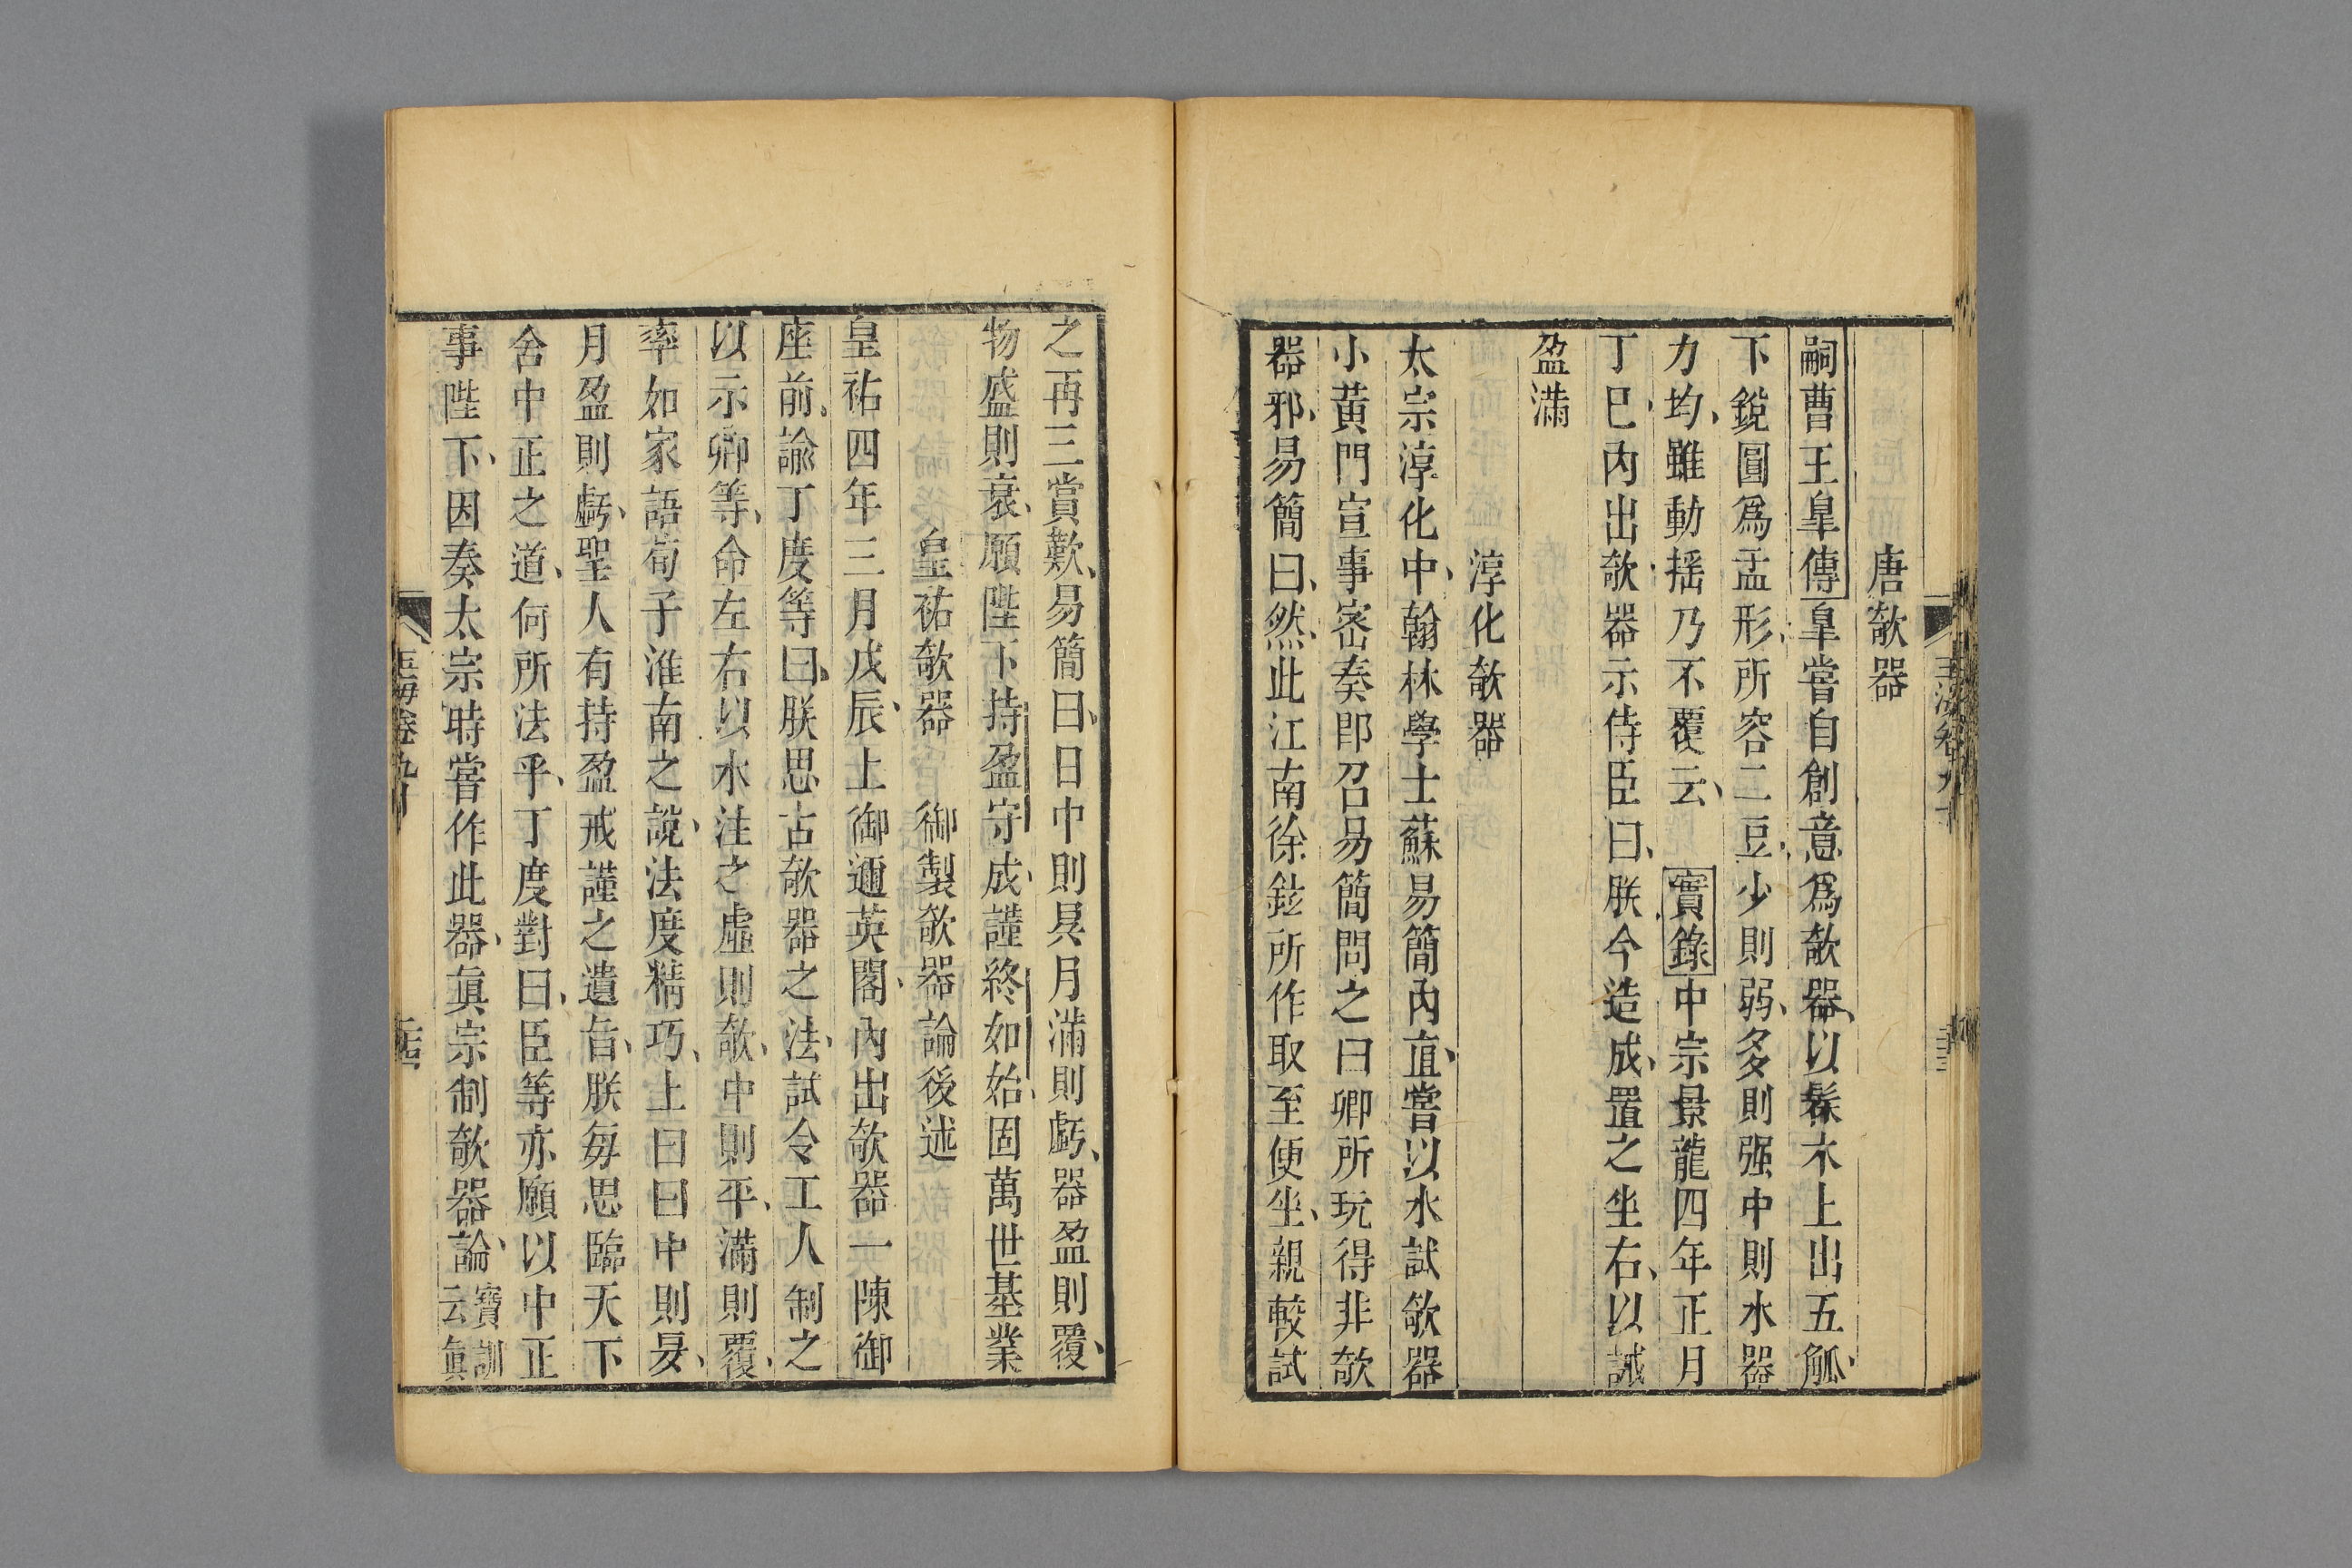 唐欹器
嗣曹王皐傳皐嘗自創意爲欹器以髹木上出五觚
下銳圓爲盂形所容二豆少則弱多則强中則水器
力均雖動揺乃不覆云實錄中宗景龍四年正月
丁巳內出欹器示侍臣曰朕今造成置之坐右以誡
盈滿
淳化欹器
太宗淳化中翰林學士蘇易簡內直嘗以水試欹器
小黃門宣事宻奏即召易簡問之曰卿所玩得非欹
器邪易簡曰然此江南徐鉉所作取至便坐親較試
之再三賞歎易簡曰日中則昃月滿則虧器盈則覆
物盛則衰願陛下持盈守成謹終如始固萬世基業
皇祐欹器 御製欹器論後述
皇祐四年三月戊辰上御邇英閣內出欹器一陳御
座前諭丁度等曰朕思古欹器之法試令工人制之
以示卿等命左右以水注之虛則欹中則平滿則覆
率如家語荀子淮南之說法度精巧上曰日中則昃
月盈則虧聖人有持盈戒謹之遺旨朕每思臨天下
舍中正之道何所法乎丁度對曰臣等亦願以中正
事陛下因奏太宗時嘗作此器眞宗制欹器論寶訓云眞